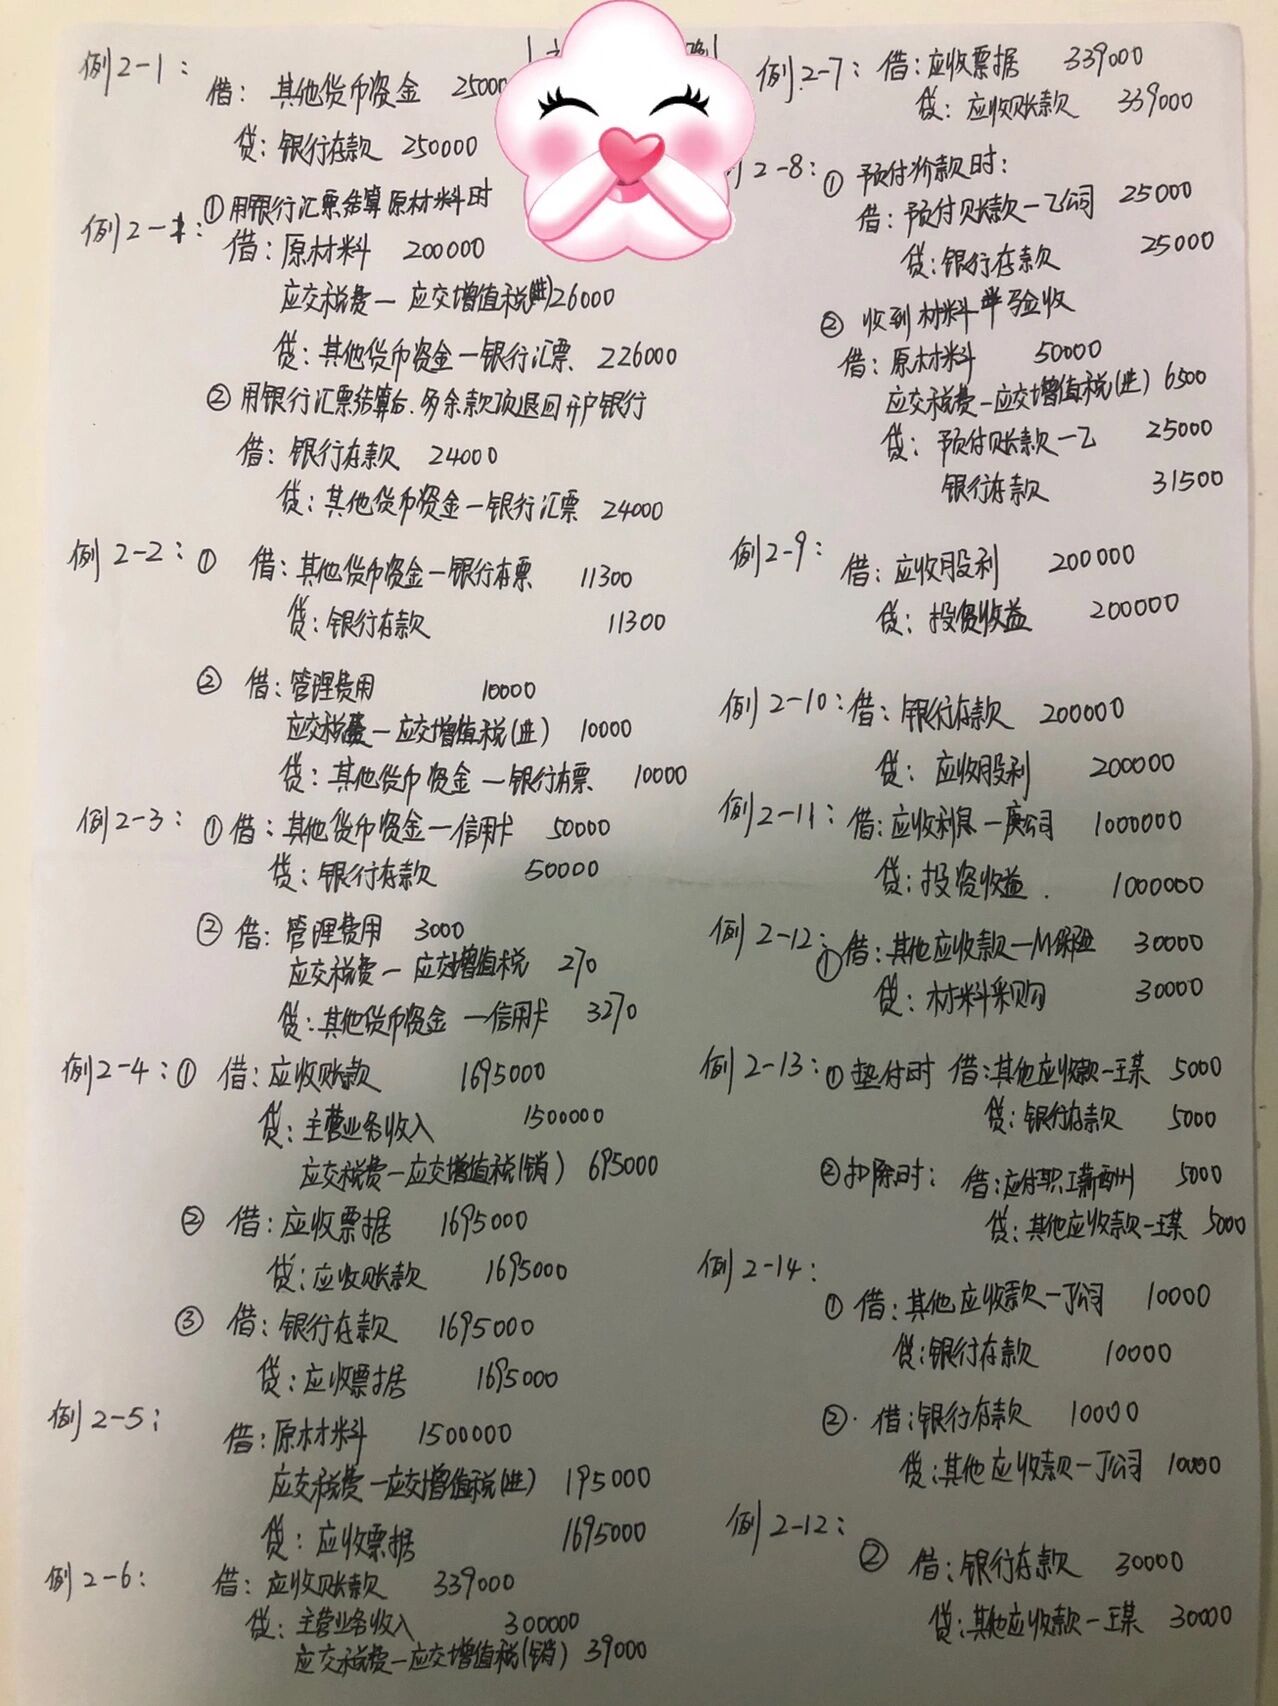 例2-1：
借：其他货币资金 25000
贷：银行存款 250000
例2-1：①用银行汇票结算原材料时
借：原材料 200000
应交税费—应交增值税(进)26000
贷：其他货币资金—银行汇票 226000
②用银行汇票结算后.多余款项退回开户银行
借：银行存款 24000
贷：其他货币资金—银行汇票 24000
例2-2：① 借：其他货币资金—银行本票 11300
贷：银行存款 11300
② 借：管理费用 10000
应交税费—应交增值税(进) 10000
贷：其他货币资金—银行本票 10000
例2-3：①借：其他货币资金—信用卡 50000
贷：银行存款 50000
② 借：管理费用 3000
应交税费—应交增值税 270
贷：其他货币资金—信用卡 3270
例2-4：① 借：应收账款 1695000
贷：主营业务收入 1500000
应交税费—应交增值税(销) 695000
② 借：应收票据 1695000
贷：应收账款 1695000
③ 借：银行存款 1695000
贷：应收票据 1695000
例2-5：
借：原材料 1500000
应交税费—应交增值税(进) 195000
贷：应收票据 1695000
例2-6：
借：应收账款 339000
贷：主营业务收入 300000
应交税费—应交增值税(销) 39000
例2-7：借：应收票据 339000
贷：应收账款 339000
2-8：① 预付价款时：
借：预付账款—乙公司 25000
贷：银行存款 25000
② 收到材料并验收
借：原材料 50000
应交税费—应交增值税(进) 6500
贷：预付账款—乙 25000
银行存款 31500
例2-9：借：应收股利 200000
贷：投资收益 200000
例2-10：借：银行存款 200000
贷：应收股利 200000
例2-11：借：应收利息—庚公司 1000000
贷：投资收益. 1000000
例2-12：
①借：其他应收款—M保险 30000
贷：材料采购 30000
例2-13：①垫付时 借：其他应收款—王某 5000
贷：银行存款 5000
②扣除时：借：应付职工薪酬 5000
贷：其他应收款—王某 5000
例2-14：
① 借：其他应收款—丁公司 10000
贷：银行存款 10000
②. 借：银行存款 10000
贷：其他应收款—丁公司 10000
例2-12：
② 借：银行存款 30000
贷：其他应收款—王某 30000